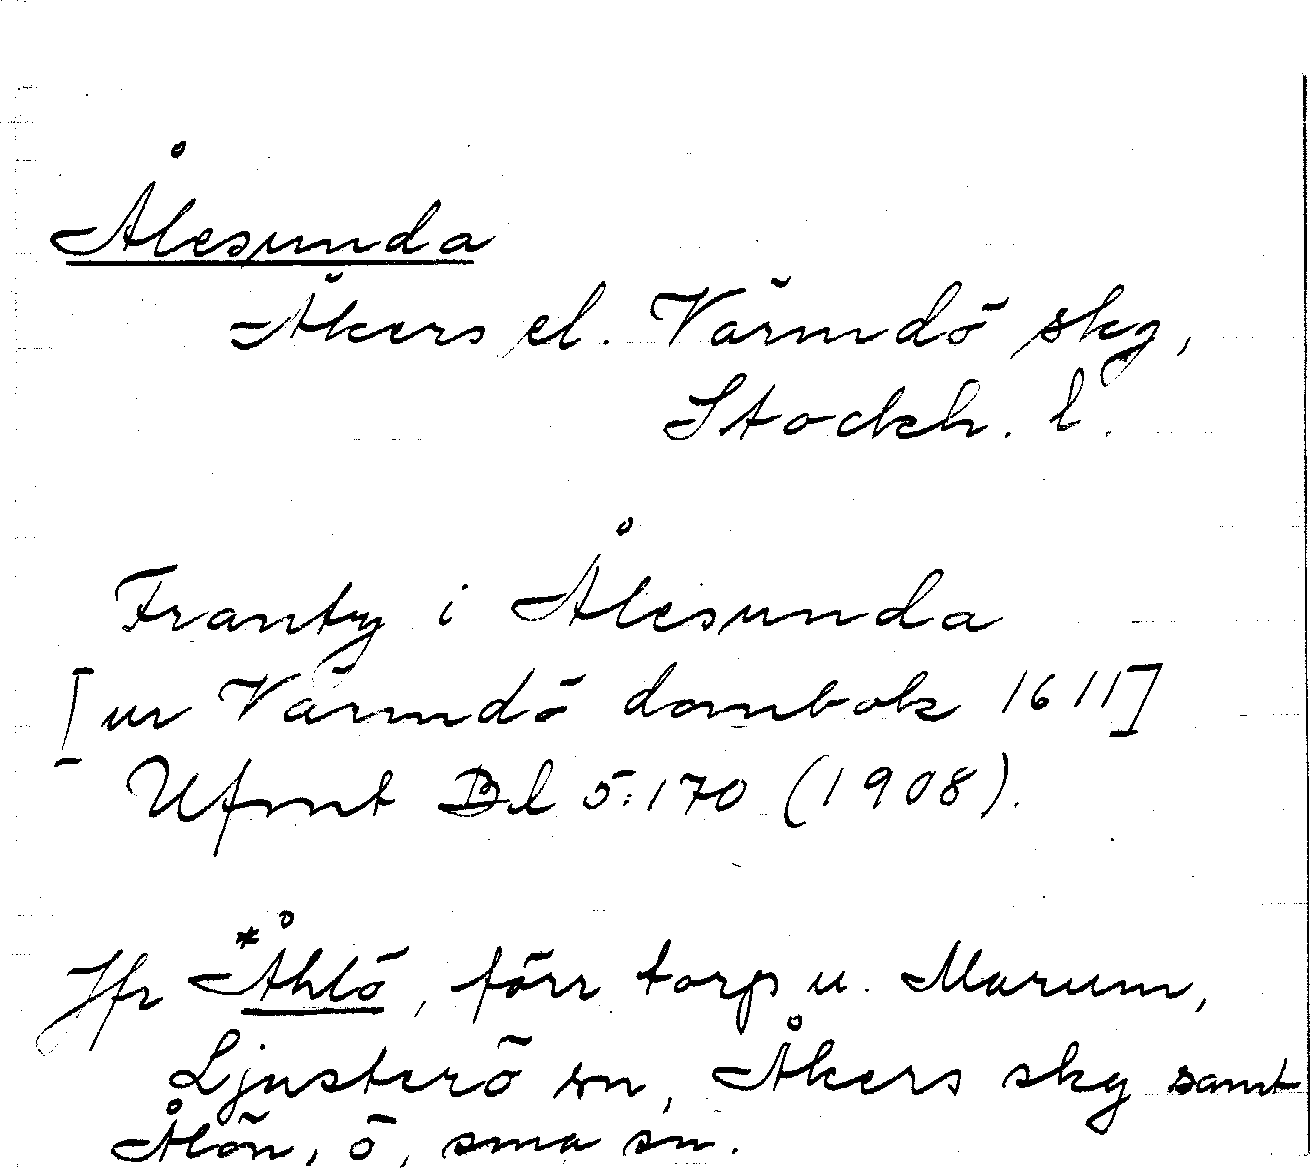 Ålesunda
Åkers el. Värmdö skg,
Stockh. l.
Frantz i Ålesunda
[ur Värmdö dombok 1611]
Ufmt Bd 5:170 (1908).
Jfr *Åhlö, förr torp u. Marum,
Ljusterö sn, Åkers skg samt
Ålön, ö, sma sn.